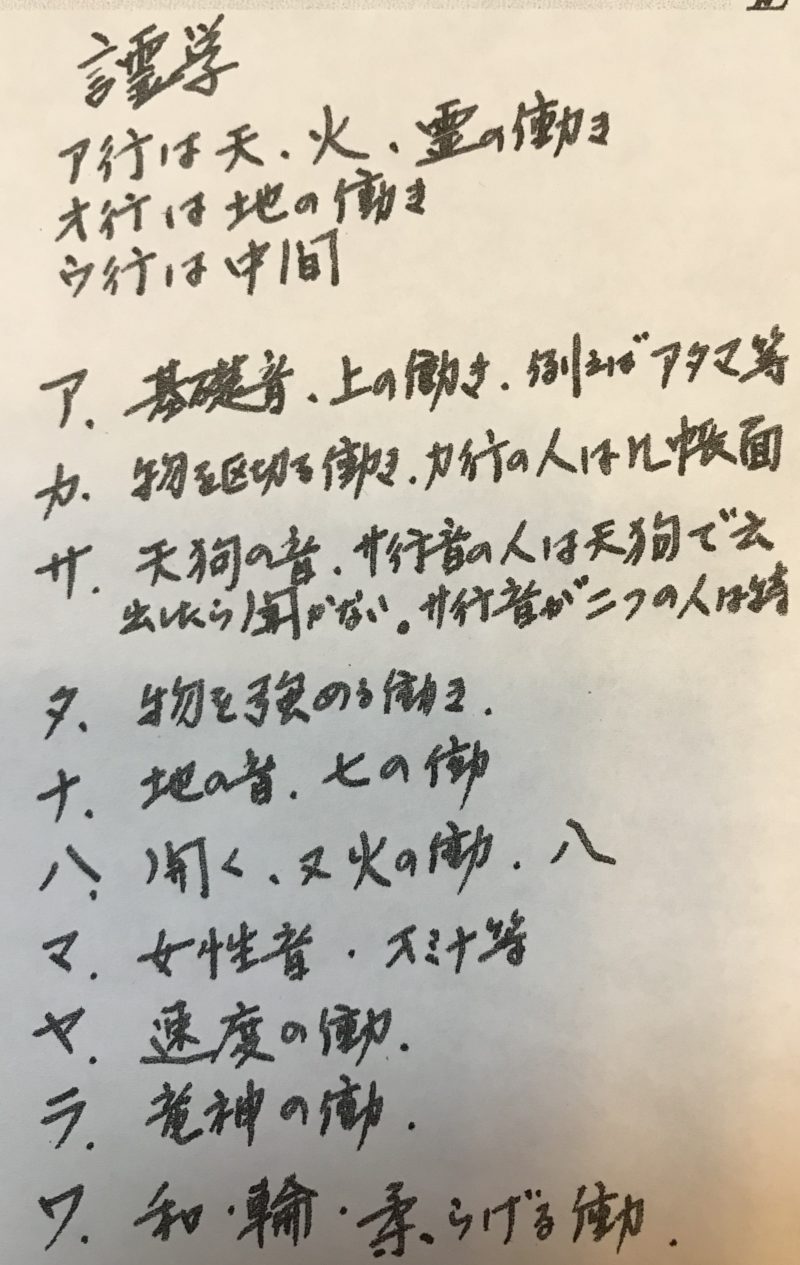 言霊学
ア行は天、火、霊の働き
オ行は地の働き
ウ行は中間
ア、基礎音、上の働き、例えばアタマ等
カ、物を区切る働き、カ行の人は几帳面
サ、天狗の音、サ行音の人は天狗で云
出したら聞かない。サ行音が二つの人は特
タ、物を強める働き、
ナ、地の音、七の働
ハ、開く、又火の働、八
マ、女性音・スミナ等
ヤ、速度の働、
ラ、竜神の働、
ワ、和・輪・柔らげる働、